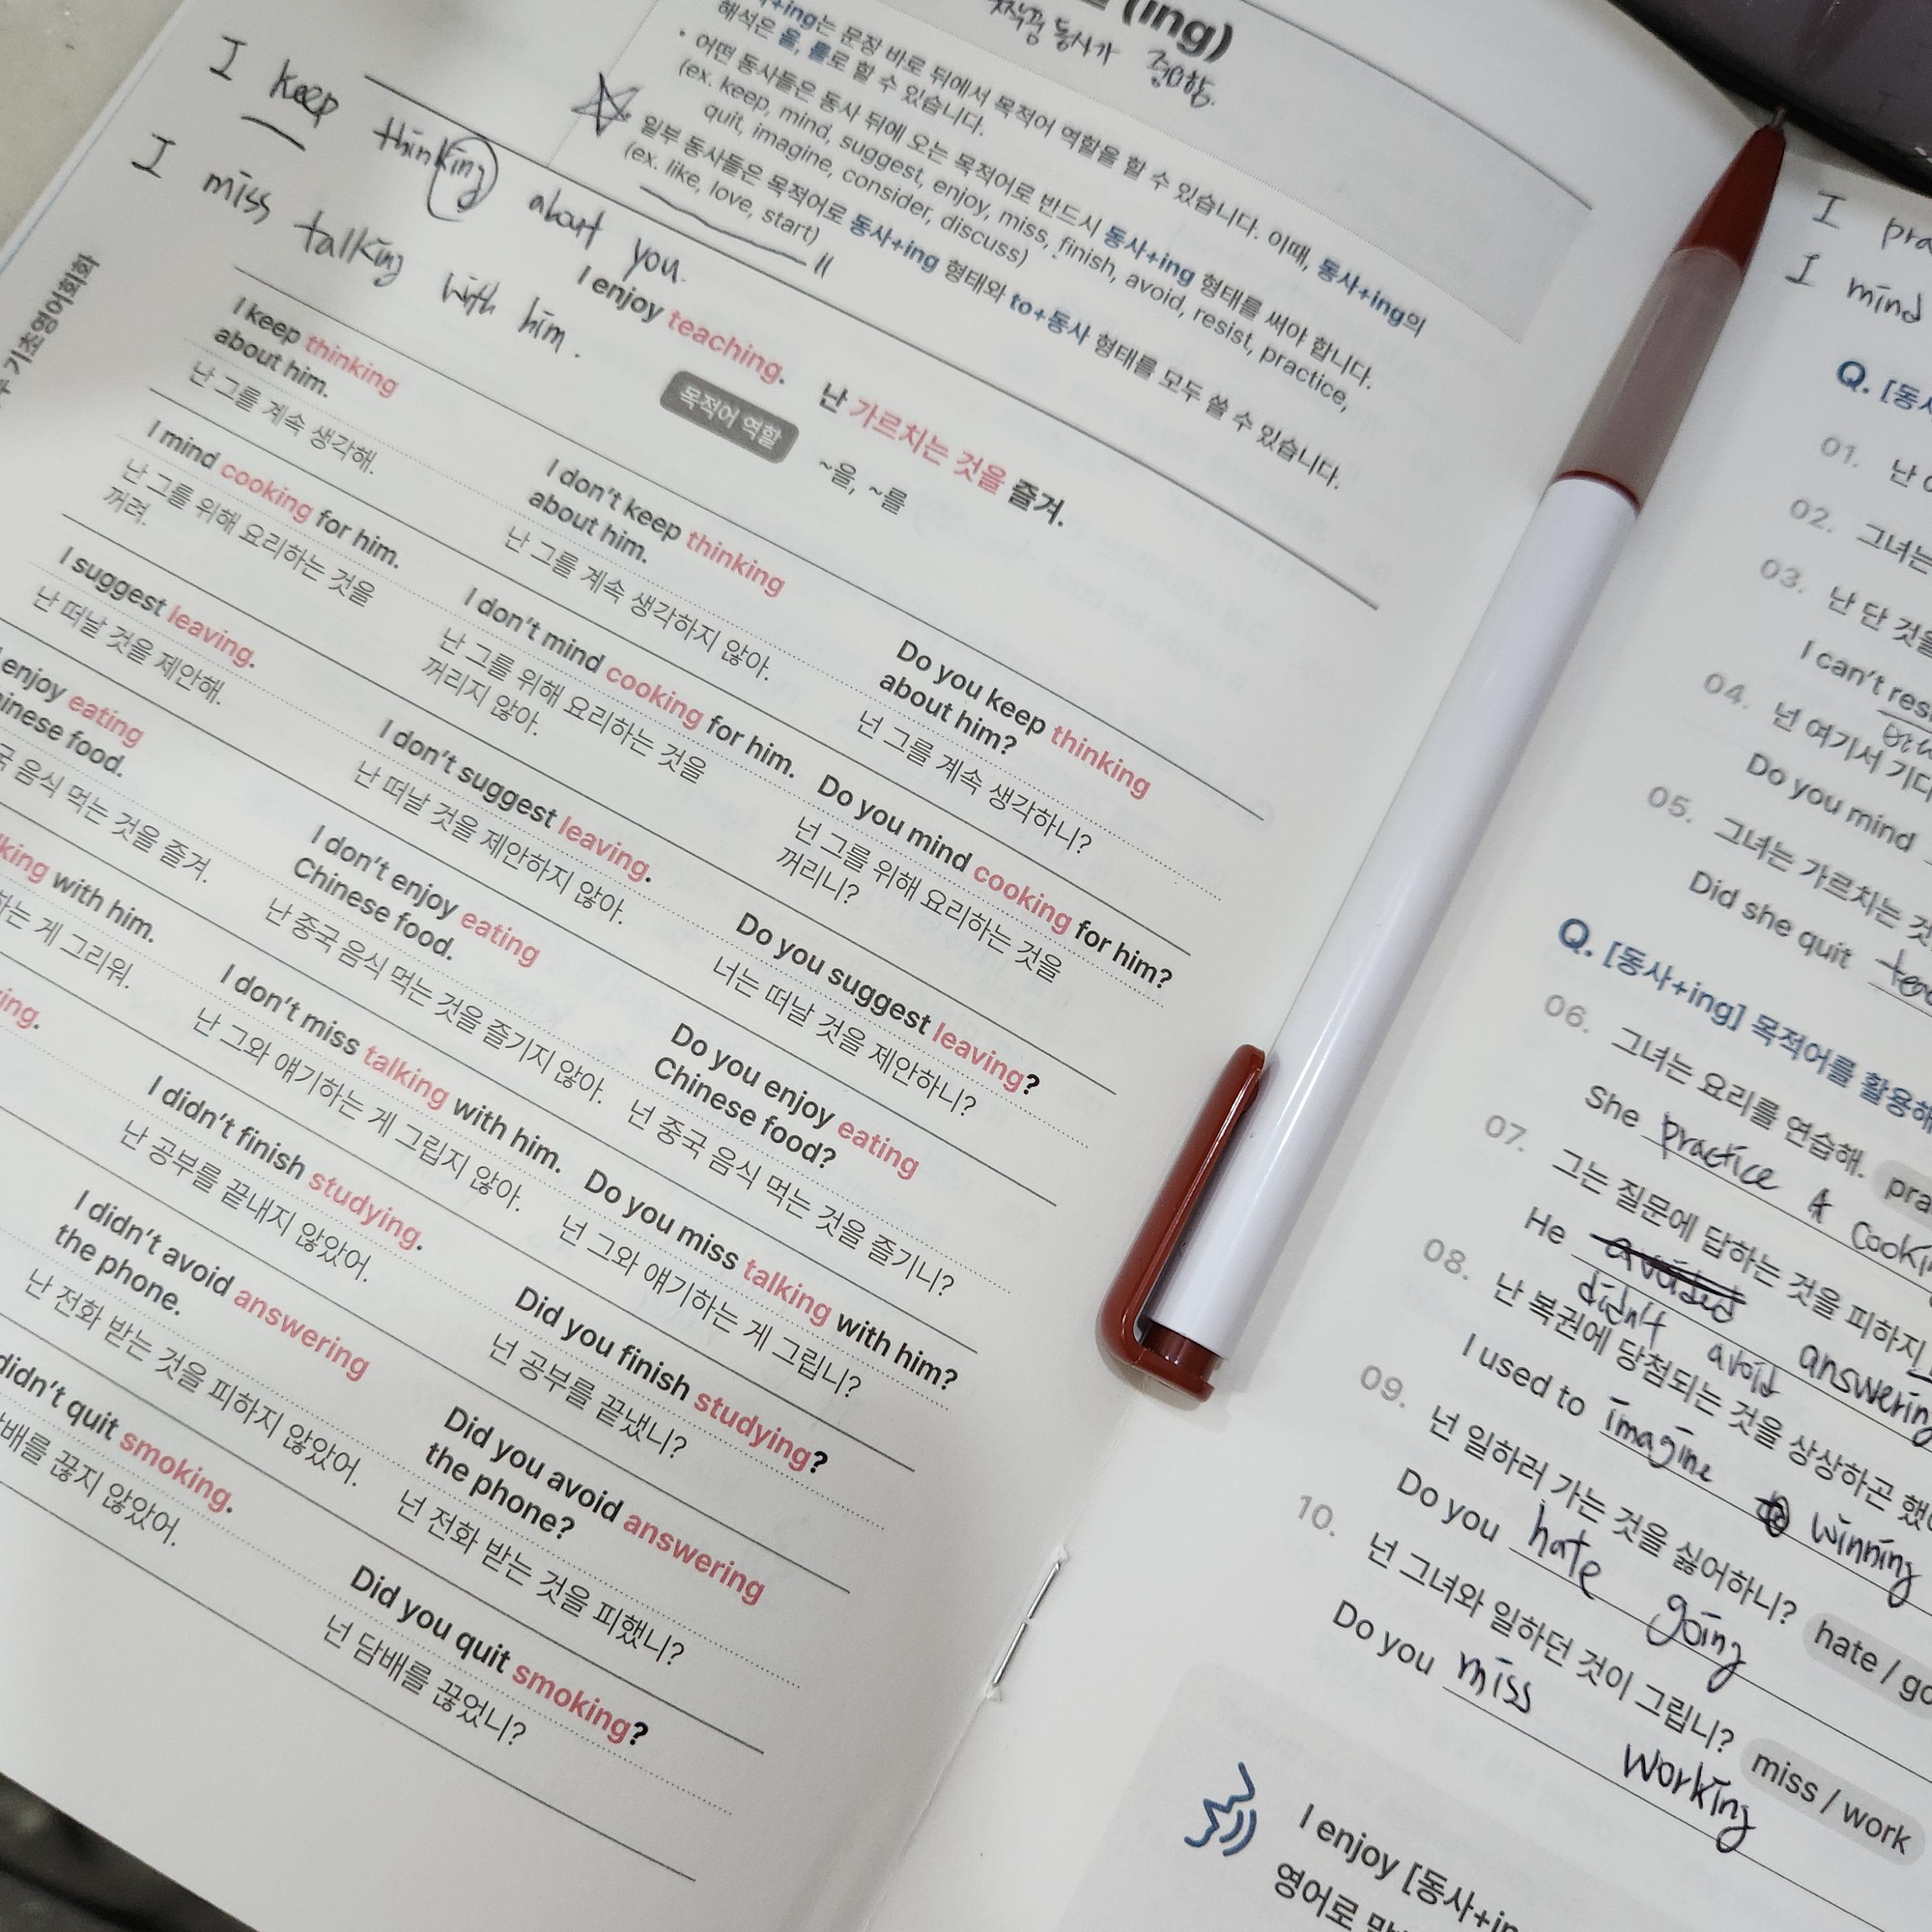 (ing)
동사가 중요함.
+ing는 문장 바로 뒤에서 목적어 역할을 할 수 있습니다. 이때, 동사+ing의
해석은 을, 를로 할 수 있습니다.
• 어떤 동사들은 동사 뒤에 오는 목적어로 반드시 동사+ing 형태를 써야 합니다.
(ex. keep, mind, suggest, enjoy, miss, finish, avoid, resist, practice,
quit, imagine, consider, discuss)
일부 동사들은 목적어로 동사+ing 형태와 to+동사 형태를 모두 쓸 수 있습니다.
(ex. like, love, start)
I keep thinking about you.
I miss talking with him.
기초영어회화
I enjoy teaching. 난 가르치는 것을 즐겨.
목적어 역할 ~을, ~를
I keep thinking
about him.
난 그를 계속 생각해.
I don't keep thinking
about him.
난 그를 계속 생각하지 않아.
Do you keep thinking
about him?
넌 그를 계속 생각하니?
I mind cooking for him.
난 그를 위해 요리하는 것을
꺼려.
I don't mind cooking for him.
난 그를 위해 요리하는 것을
꺼리지 않아.
Do you mind cooking for him?
넌 그를 위해 요리하는 것을
꺼리니?
I suggest leaving.
난 떠날 것을 제안해.
I don't suggest leaving.
난 떠날 것을 제안하지 않아.
Do you suggest leaving?
너는 떠날 것을 제안하니?
enjoy eating
hinese food.
음식 먹는 것을 즐겨.
I don't enjoy eating
Chinese food.
난 중국 음식 먹는 것을 즐기지 않아.
Do you enjoy eating
Chinese food?
넌 중국 음식 먹는 것을 즐기니?
king with him.
하는 게 그리워.
I don't miss talking with him.
난 그와 얘기하는 게 그립지 않아.
Do you miss talking with him?
넌 그와 얘기하는 게 그립니?
ing.
I didn't finish studying.
난 공부를 끝내지 않았어.
Did you finish studying?
넌 공부를 끝냈니?
I didn't avoid answering
the phone.
난 전화 받는 것을 피하지 않았어.
Did you avoid answering
the phone?
넌 전화 받는 것을 피했니?
didn't quit smoking.
배를 끊지 않았어.
Did you quit smoking?
넌 담배를 끊었니?
I pra
I mind
Q. [동사
01. 난
02. 그녀는
03. 난 단 것을
I can't res
04. 넌 여기서 기다
Do you mind
05. 그녀는 가르치는 것
Did she quit tea
Q. [동사+ing] 목적어를 활용해
06. 그녀는 요리를 연습해. pra
She practice cooki
07. 그는 질문에 답하는 것을 피하지
He avoided
didn't avoid answering
08. 난 복권에 당첨되는 것을 상상하곤 했
I used to imagine winning
09. 넌 일하러 가는 것을 싫어하니? hate / go
Do you hate going
10. 넌 그녀와 일하던 것이 그립니? miss / work
Do you miss working
I enjoy [동사+in
영어로